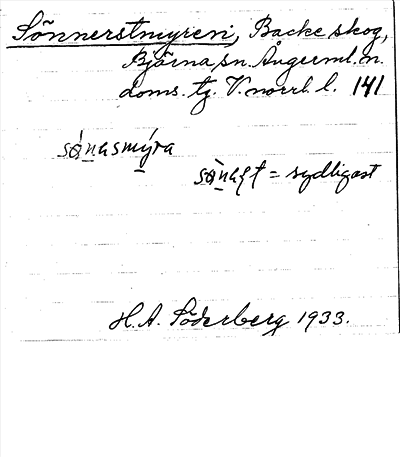 Sönnerstmyren, Backe skog,
Björna sn. Ångerml. n.
doms. tg. V.norrl. l. 141
sónasmýra
= sydligast
H. A. Söderberg 1933.